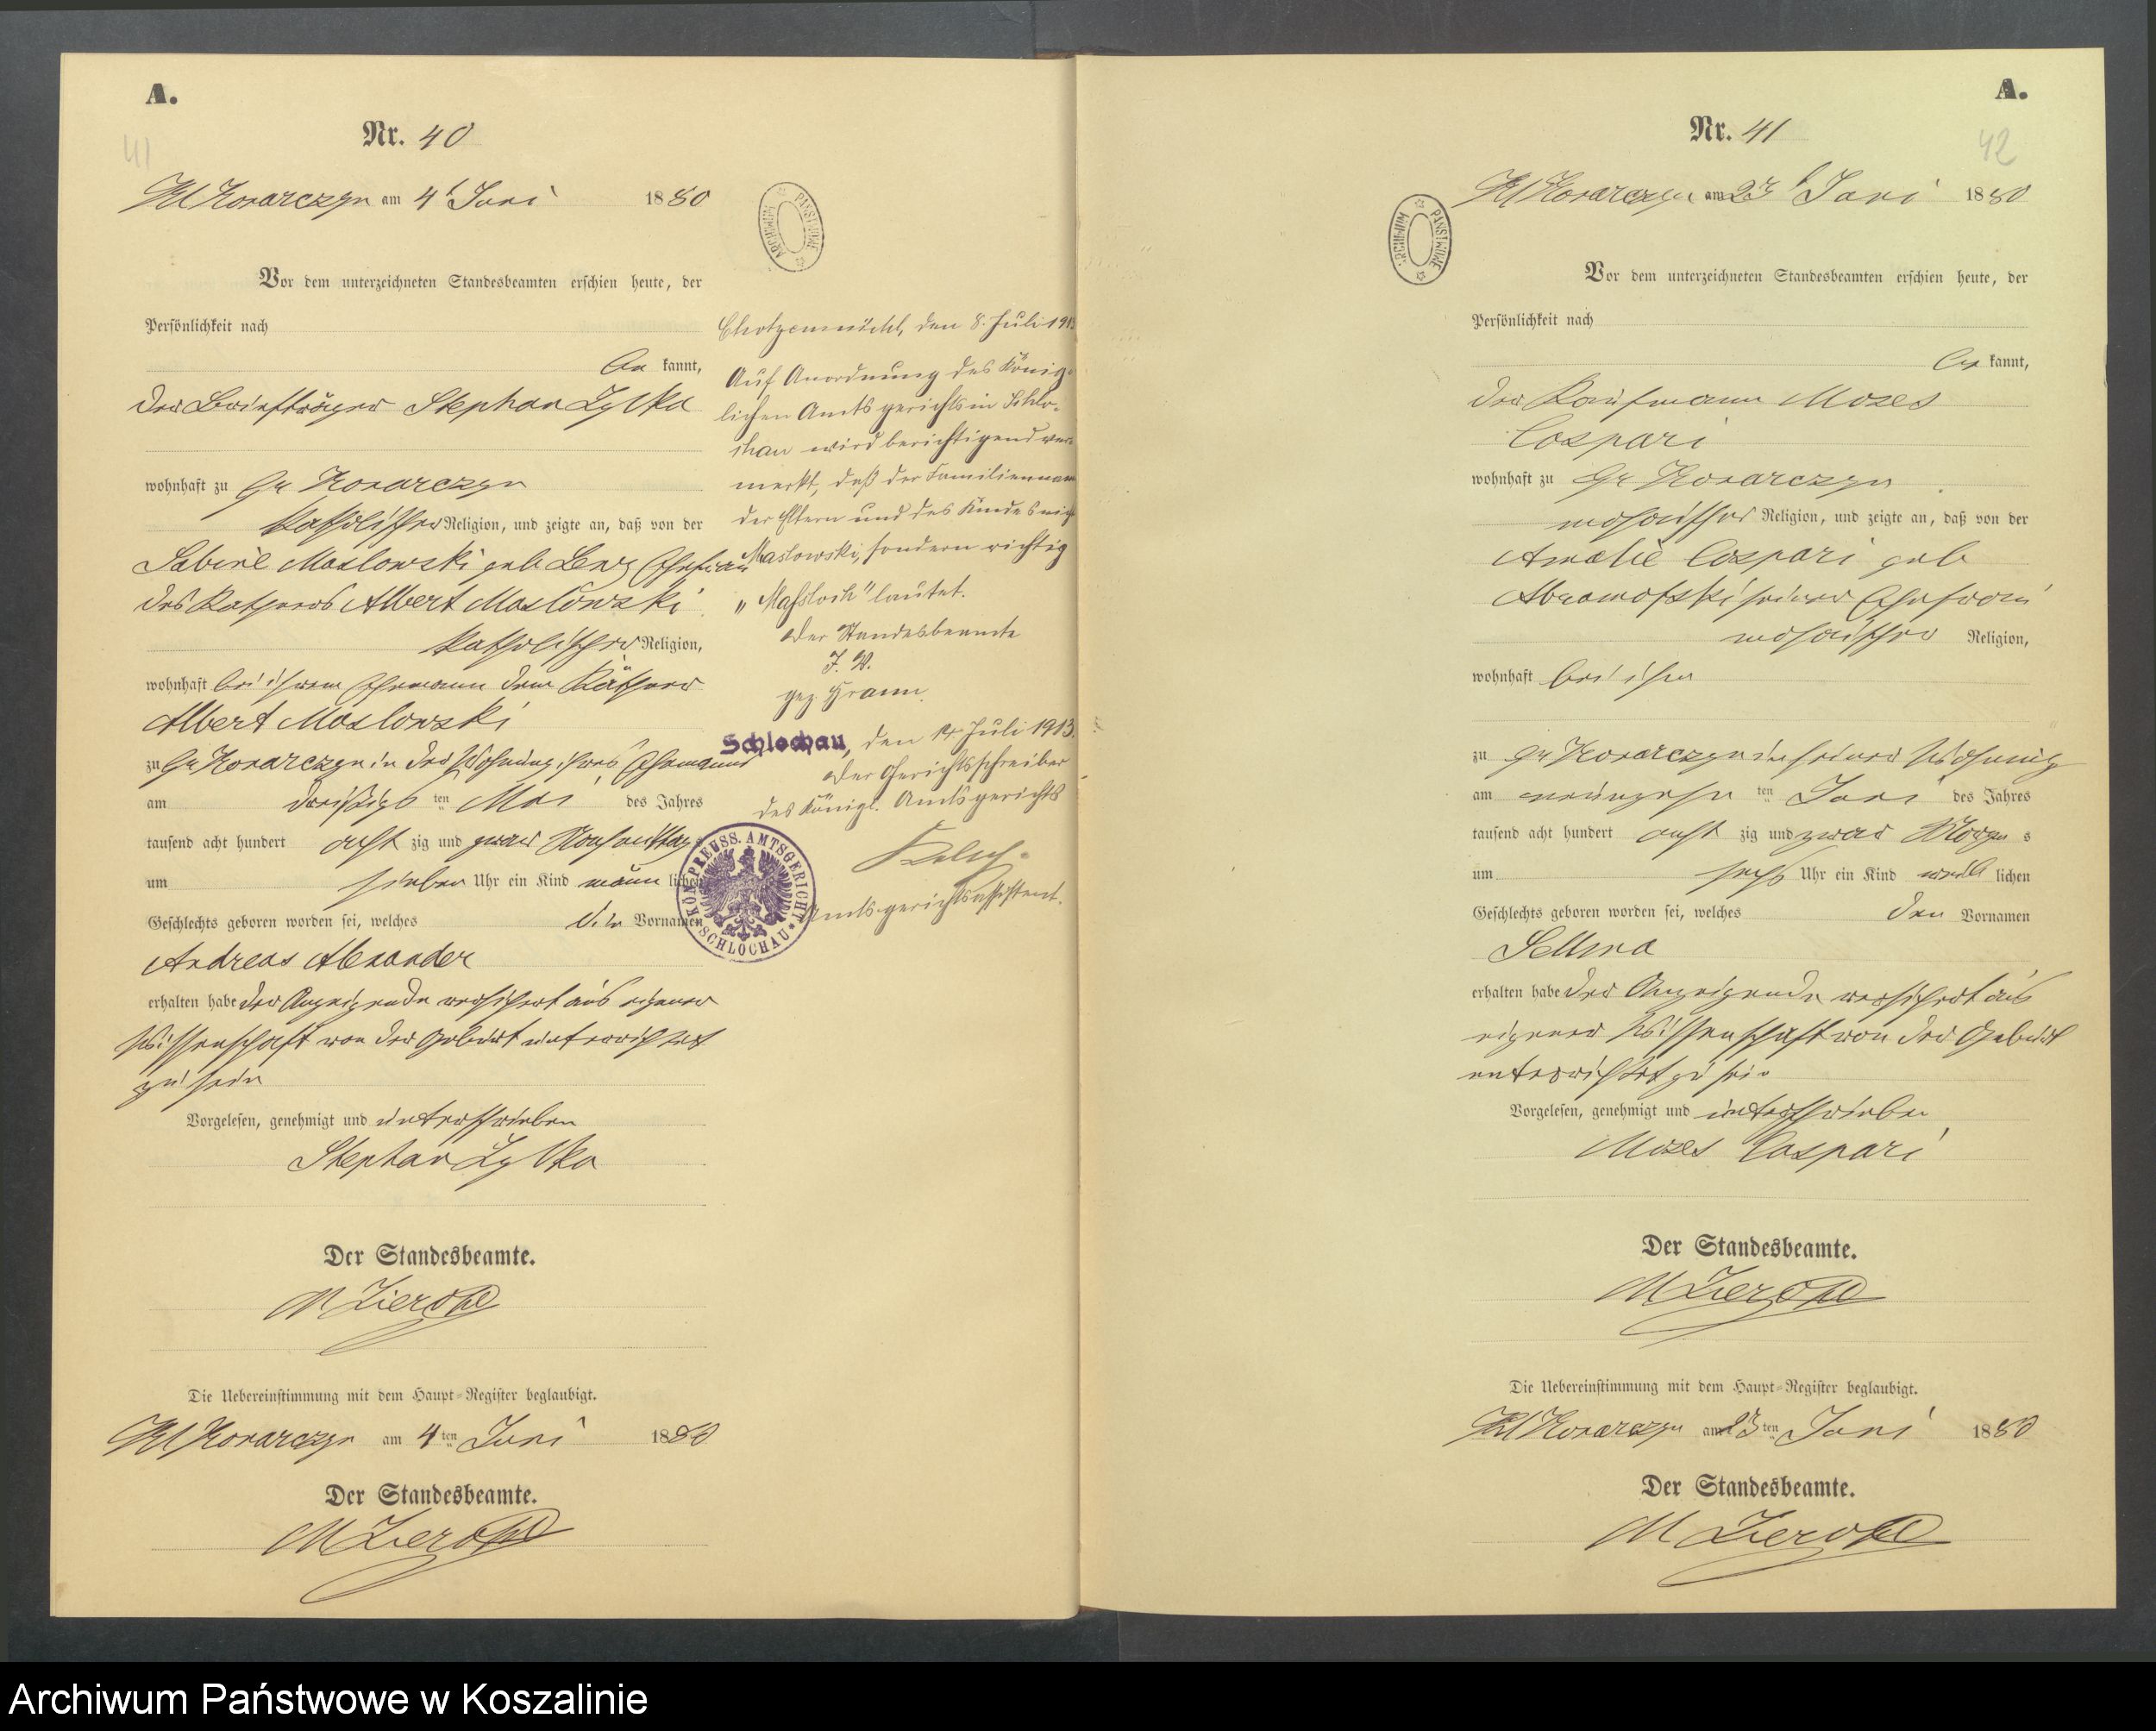 A.
41
Nr. 40
Kl Konarczyn am 4t Juni 1880
ARCHIWUM PAŃSTWOWE
Vor dem unterzeichneten Standesbeamten erschien heute, der
Persönlichkeit nach
be kannt,
der Briefträger Stephan Zylka
wohnhaft zu Gr Konarczyn
katholischer Religion, und zeigte an, daß von der
Sabine Maslowski geb Ehefrau
des Käthners Albert Maslowski
katholischer Religion,
wohnhaft bei ihrem Ehemann dem Käthner
Albert Maslowski
zu Gr Konarczyn in der Wohnung ihres Ehemanns
am dreißigs ten Mai des Jahres
tausend acht hundert acht zig und zwar Nachmittag s
um sieben Uhr ein Kind männ lichen
Geschlechts geboren worden sei, welches die Vornamen
Andreas Alexander
erhalten habe der Anzeigende versichert aus eigener
Wissenschaft von der Geburt unterrichtet
zu sein
Vorgelesen, genehmigt und unterschrieben
Stephan Zylka
Der Standesbeamte.
Die Uebereinstimmung mit dem Haupt-Register beglaubigt.
Kl Konarczyn am 4 ten Juni 1880
Der Standesbeamte.
den 8. Juli 1913
Auf Anordnung des König-
lichen Amtsgerichts in Schlo-
chau wird berichtigend ver-
merkt, daß der Familienname
der Eltern und des Kindes nicht
Maslowski, sondern richtig
„Maßloch" lautet.
Der Standesbeamte
J. V.
gez Gramm
Schlochau, den Juli 1913.
Der Gerichtsschreiber
des Königl. Amtsgerichts
Amtsgerichtsassistent.
KÖN. PREUSS. AMTSGERICHT * SCHLOCHAU *
A.
42
Nr. 41
Kl Konarczyn am 23t Juni 1880
ARCHIWUM PAŃSTWOWE
Vor dem unterzeichneten Standesbeamten erschien heute, der
Persönlichkeit nach
be kannt,
der Kaufmann Moses
Caspari
wohnhaft zu Gr Konarczyn
mosaischer Religion, und zeigte an, daß von der
Amalie Caspari geb
Abramofski seiner Ehefrau
mosaischer Religion,
wohnhaft bei ihm
zu Gr Konarczyn in seiner Wohnung
am neunzehn ten Juni des Jahres
tausend acht hundert acht zig und zwar Morgen s
um sechs Uhr ein Kind weib lichen
Geschlechts geboren worden sei, welches den Vornamen
Sellma
erhalten habe der Anzeigende versichert aus
eigener Wissenschaft von der Geburt
unterrichtet zu sein
Vorgelesen, genehmigt und unterschrieben
Moses Caspari
Der Standesbeamte.
Die Uebereinstimmung mit dem Haupt-Register beglaubigt.
Kl Konarczyn am 23 ten Juni 1880
Der Standesbeamte.
Archiwum Państwowe w Koszalinie